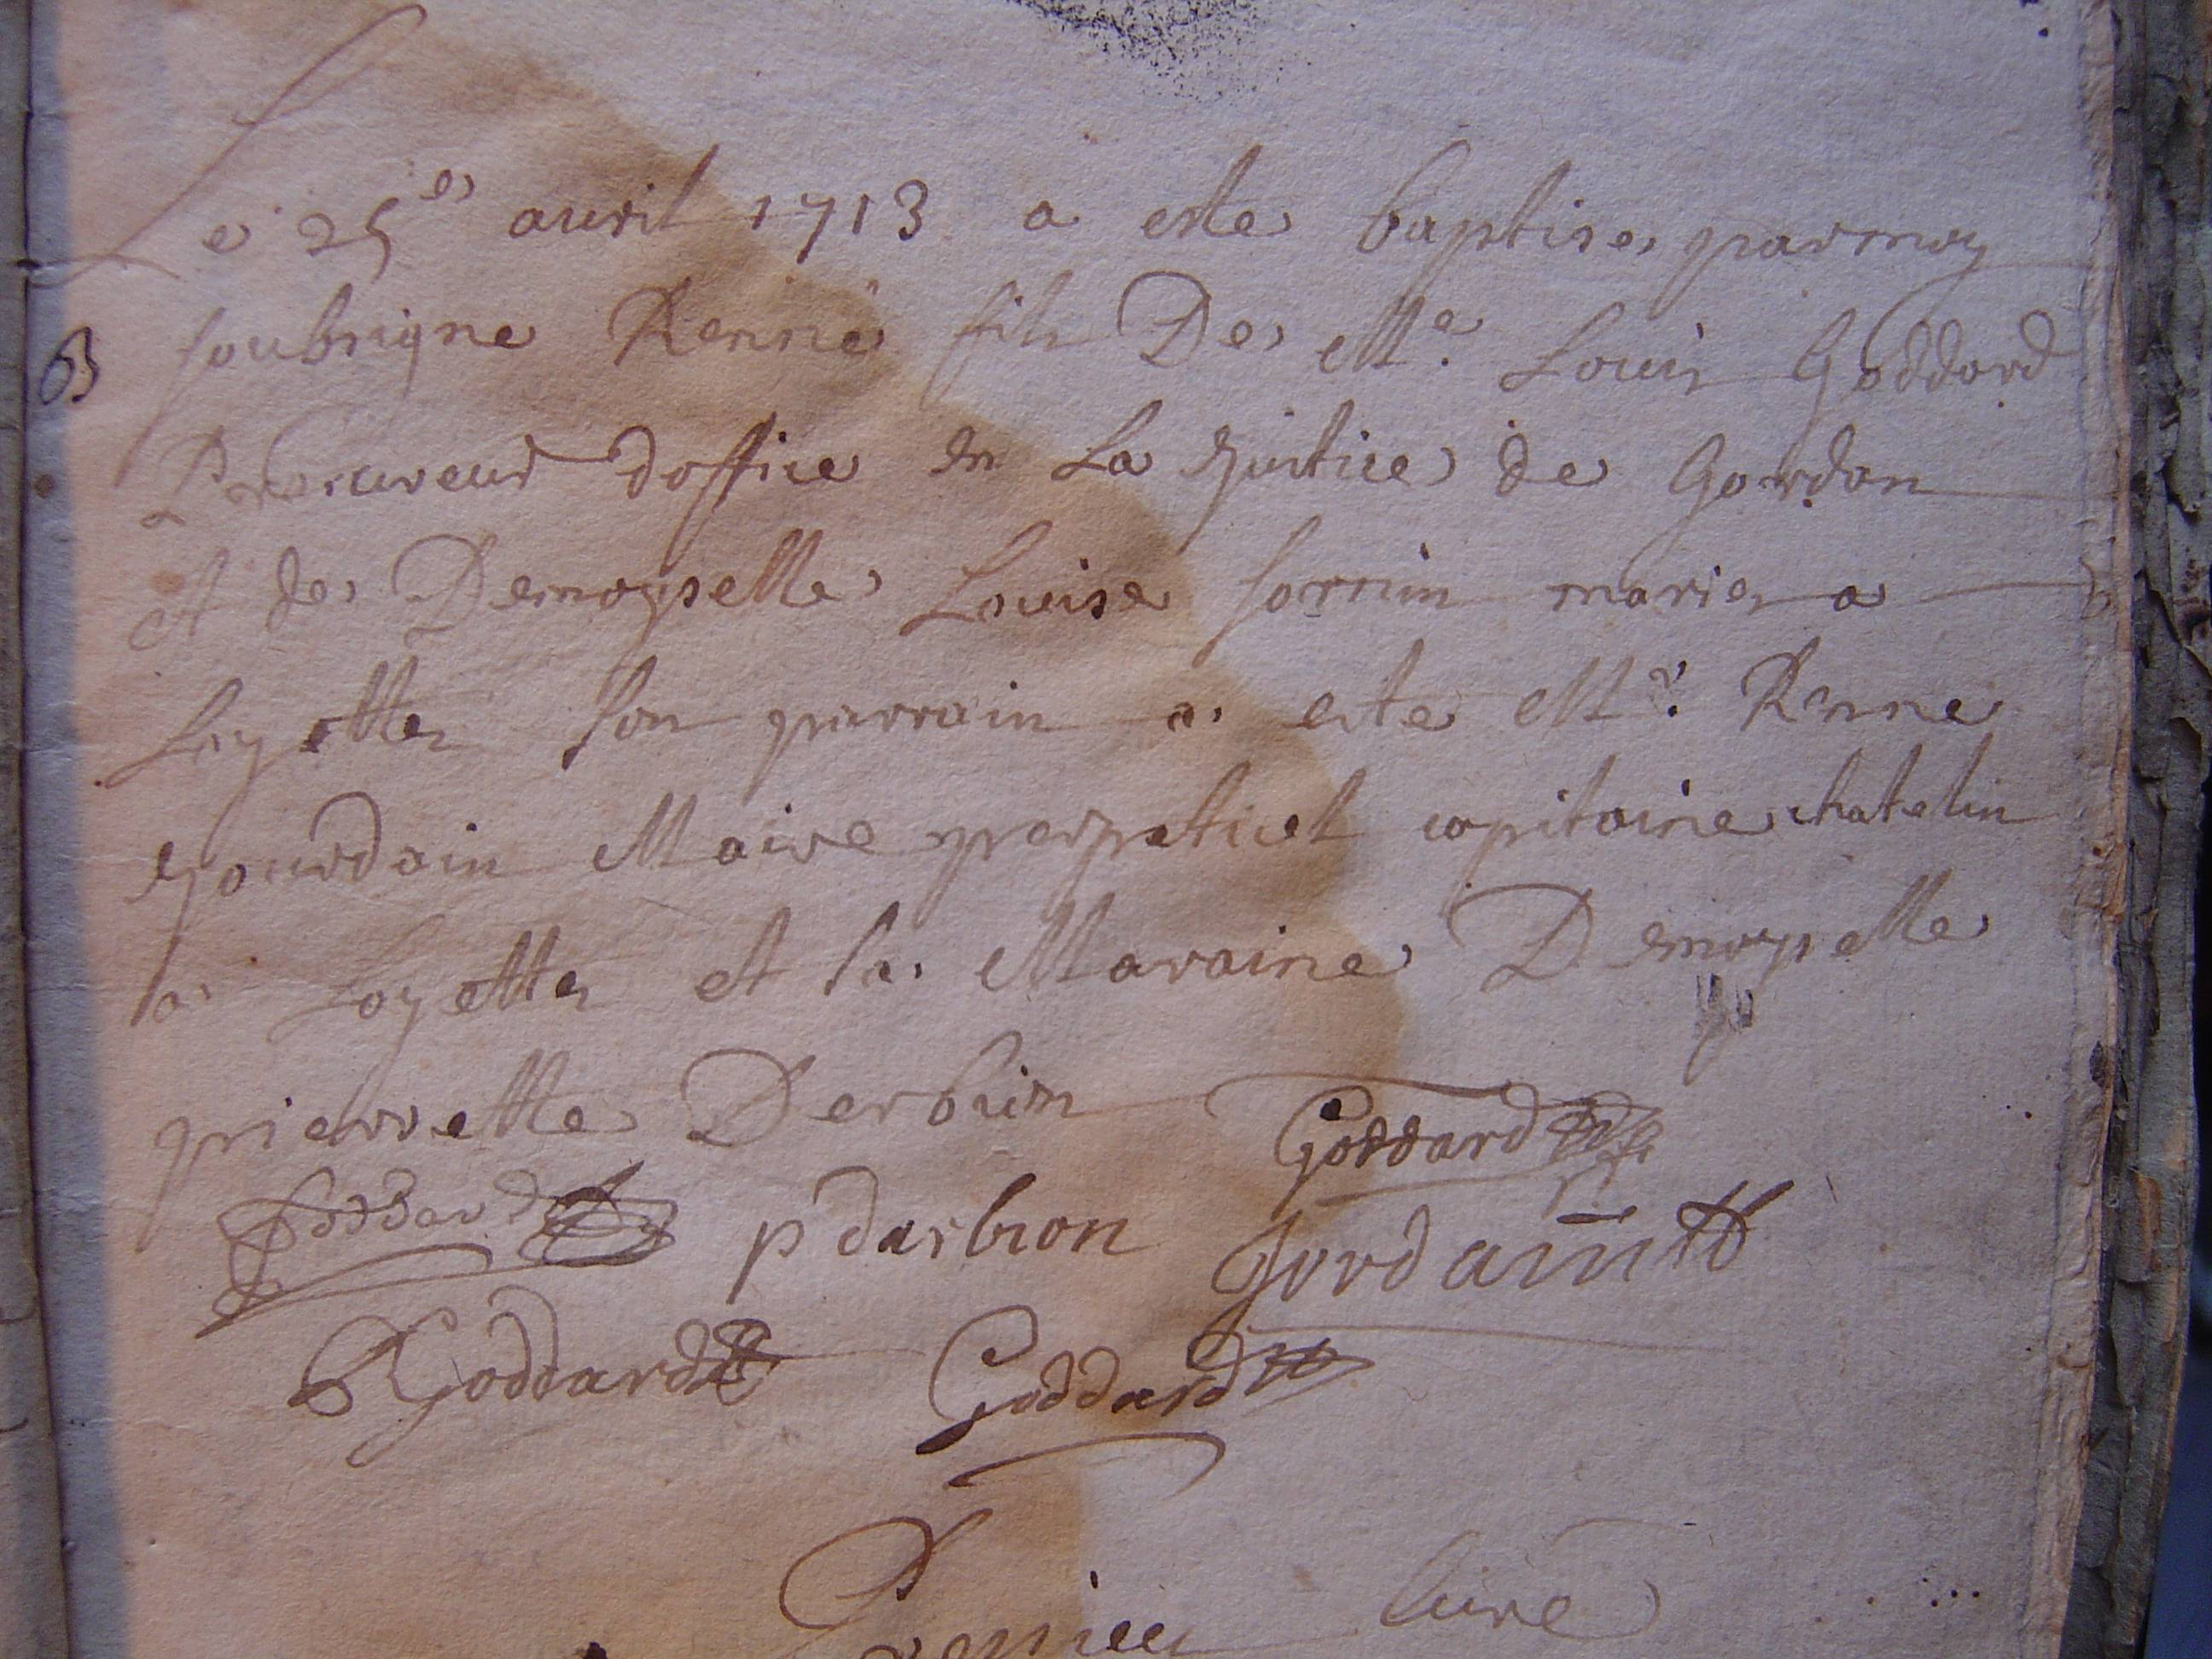 Le 25e avril 1713 a este baptise par moy
B soubsigne Renné fils De Me. Louis Goddard
Procureur doffice en La Justice de Gordan
et de Demoyselle Louise Sornin maries a
Loyettes Son parrain a este Mr. Renne
Jourdain Maire perpetuel capitaine chatelin
a Loyettes et sa Maraine Demoyselle
pierrette Derbion
Goddard
Goddard p darbion Jordain
R Goddard Goddard
curé